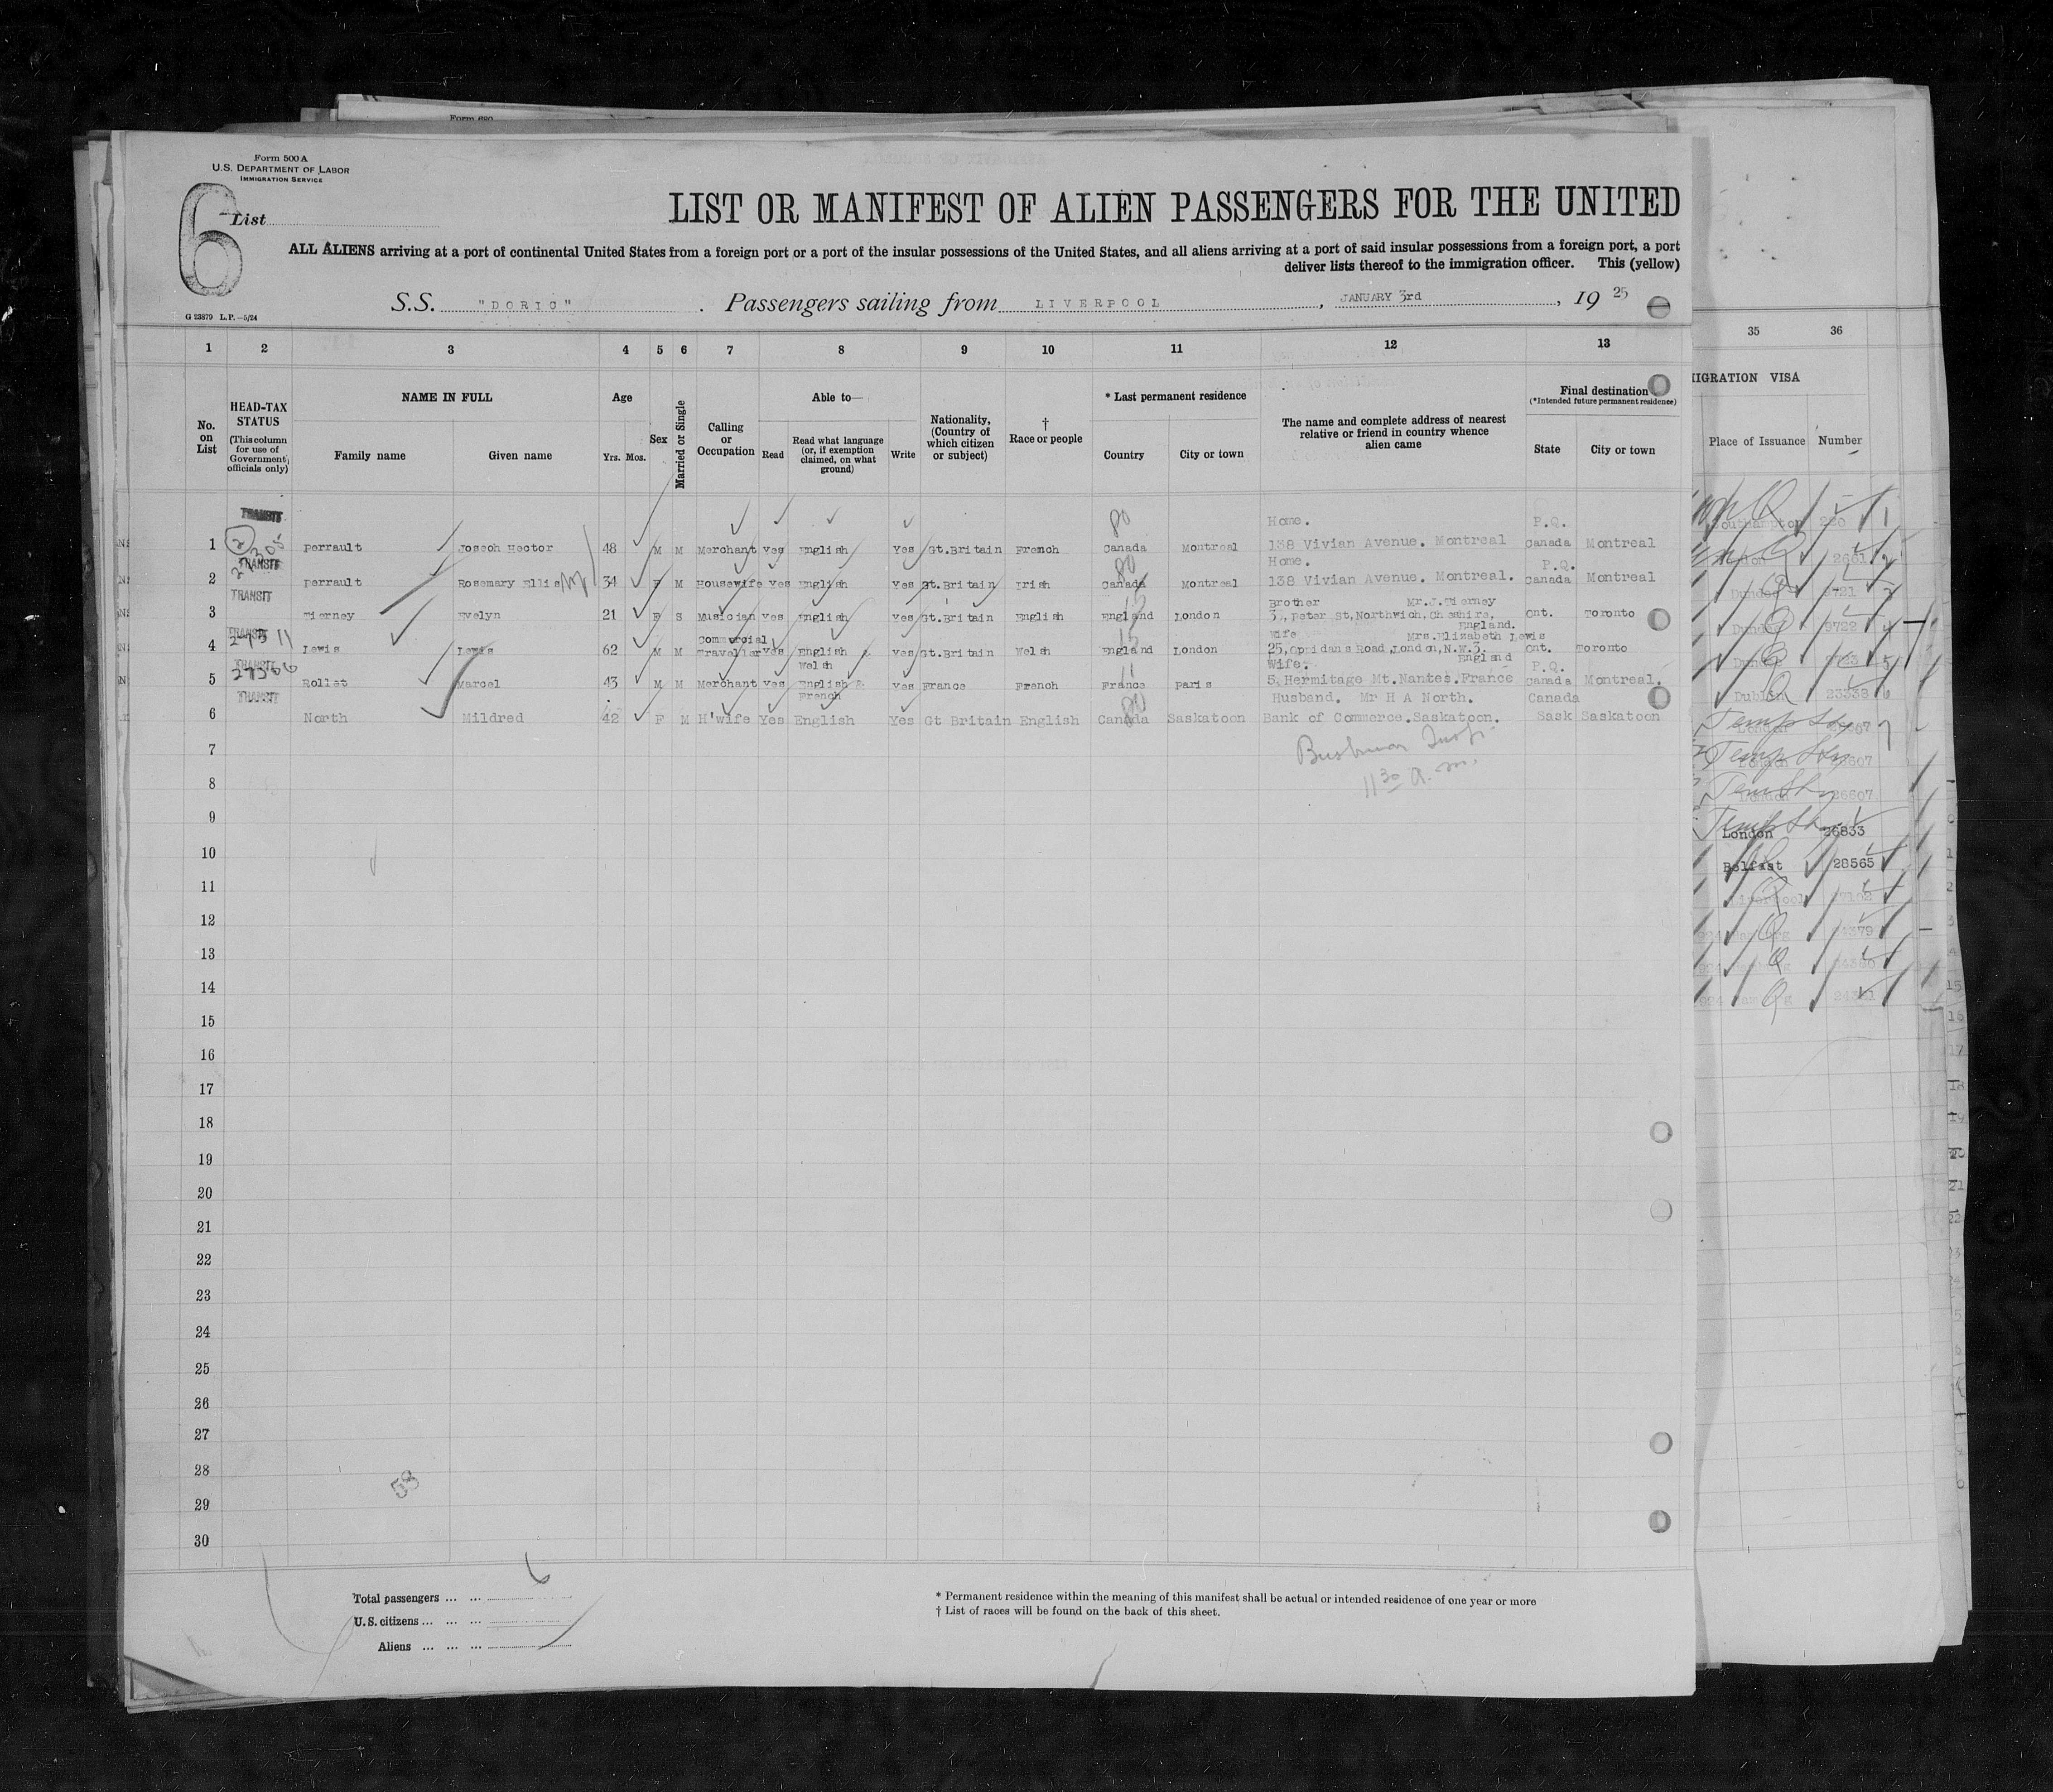 Form 500 A
U.S. DEPARTMENT OF LABOR
IMMIGRATION SERVICE
6
List
LIST OR MANIFEST OF ALIEN PASSENGERS FOR THE UNITED
ALL ALIENS arriving at a port of continental United States from a foreign port or a port of the insular possessions of the United States, and all aliens arriving at a port of said insular possessions from a foreign port, a port
deliver lists thereof to the immigration officer. This (yellow)
S.S. "DORIC". Passengers sailing from LIVERPOOL, JANUARY 3rd, 1925
G 23879 L.P.—5/24
1 2 3 4 5 6 7 8 9 10 11 12 13 35 36
No. on List
HEAD-TAX STATUS
(This column for use of Government officials only)
NAME IN FULL
Family name
Given name
Age
Yrs. Mos.
Sex
Married or Single
Calling or Occupation
Able to—
Read
Read what language (or, if exemption claimed, on what ground)
Write
Nationality, (Country of which citizen or subject)
† Race or people
* Last permanent residence
Country
City or town
The name and complete address of nearest relative or friend in country whence alien came
Final destination
(*Intended future permanent residence)
State
City or town
IGRATION VISA
Place of Issuance
Number
TRANSIT
Home. P.Q.
1 Perrault Joseph Hector 48 M M Merchant Yes English Yes Gt.Britain French Canada Montreal 138 Vivian Avenue. Montreal Canada Montreal
TRANSIT
Home. P.Q.
2 Perrault Rosemary Ellis 34 F M Housewife Yes English Yes Gt.Britain Irish Canada Montreal 138 Vivian Avenue. Montreal. Canada Montreal
TRANSIT
Brother Mr.J.Tierney
3 Tierney Evelyn 21 F S Musician Yes English Yes Gt.Britain English England London Peter St,Northwich,Cheshire, Ont. Toronto
England.
TRANSIT
Commercial Wife Mrs.Elizabeth Lewis
4 Lewis Lewis 62 M M Traveller Yes English Yes Gt.Britain Welsh England London 25,Oppidans Road,London,N.W.3. Ont. Toronto
Welsh England
TRANSIT
Wife. P.Q.
5 Rollet Marcel 43 M M Merchant Yes English & Yes France French France Paris 5,Hermitage Mt.Nantes.France Canada Montreal.
French
TRANSIT
Husband. Mr H A North. Canada
6 North Mildred 42 F M H'wife Yes English Yes Gt Britain English Canada Saskatoon Bank of Commerce.Saskatoon. Sask Saskatoon
11 30 a.m.
7
8
9
10
11
12
13
14
15
16
17
18
19
20
21
22
23
24
25
26
27
28
29
30
London 26833
Belfast 28565
Dublin 23338
58
6
Total passengers ... ...
U.S. citizens ... ... ...
Aliens ... ... ...
* Permanent residence within the meaning of this manifest shall be actual or intended residence of one year or more
† List of races will be found on the back of this sheet.